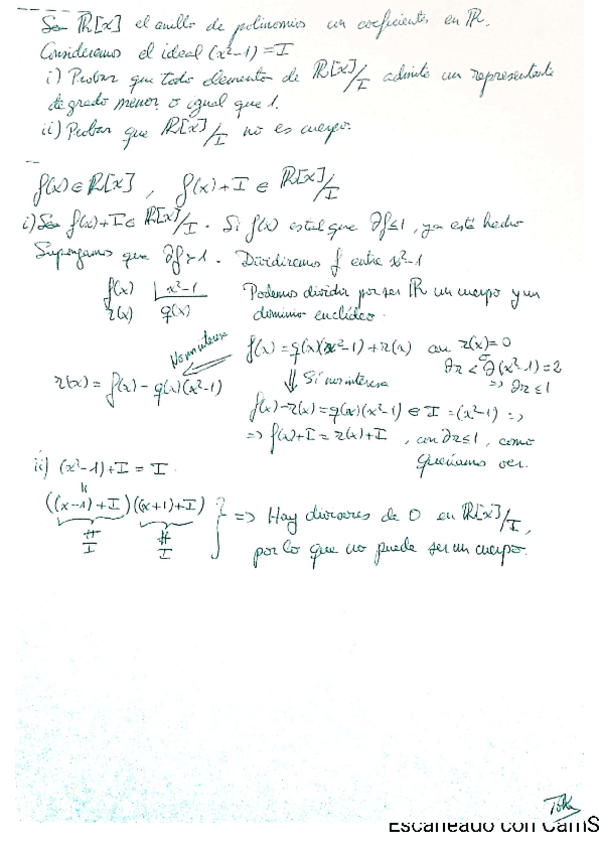 Sea ℝ[x] el anillo de polinomios con coeficientes en ℝ.
Consideramos el ideal (x²-1) = I
i) Probar que todo elemento de ℝ[x]/I admite un representante
de grado menor o igual que 1.
ii) Probar que ℝ[x]/I no es cuerpo.
f(x) ∈ ℝ[x] , f(x)+I ∈ ℝ[x]/I
i) Sea f(x)+I ∈ ℝ[x]/I . Si f(x) es tal que ∂f≤1, ya está hecho
Supongamos que ∂f>1 . Dividiremos f entre x²-1
f(x) | x²-1 Podemos dividir por ser ℝ un cuerpo y un
r(x) q(x) dominio euclídeo.
No nos interesa
f(x) = q(x)(x²-1) + r(x) con r(x)=0
o
∂r < ∂(x²-1)=2
⇒ ∂r ≤ 1
r(x) = f(x) - q(x)(x²-1)
⇓ Sí nos interesa
f(x)-r(x) = q(x)(x²-1) ∈ I = (x²-1) ⇒
⇒ f(x)+I = r(x)+I , con ∂r≤1, como
queríamos ver.
ii) (x²-1)+I = I.
॥
((x-1)+I)((x+1)+I) } ⇒ Hay divisores de 0 en ℝ[x]/I,
≠ ≠
I I
por lo que no puede ser un cuerpo.
Escaneado con CamS